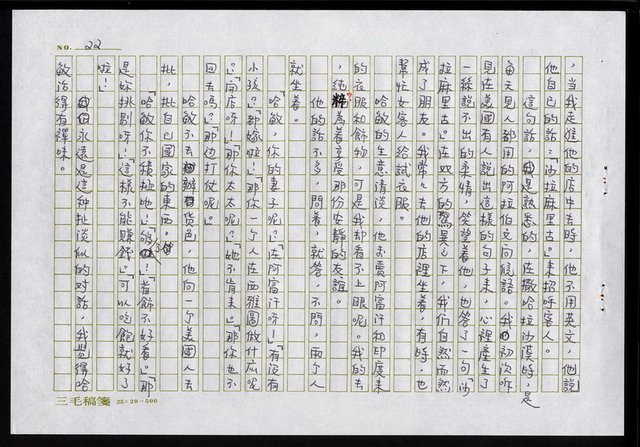 NO. 22
，當我走進他的店中去時，他不用英文，他說
他自己的話：「沙拉麻里古。」來招呼客人。
這句話，我是熟悉的，在撒哈拉沙漠時，是
每天見人都用的阿拉伯文問候語。我初次聽
見在美國有人說出這樣的句子來，心裡產生了
一絲說不出的柔情，笑望著他，也答了一句「沙
拉麻里古。」在双方的驚異之下，我们自然而然
成了朋友。我常々去他的店裡坐著，有時，也
幫忙女客人給試衣服。
哈敏的生意清淡，他來賣阿富汗和印度來
的衣服和飾物，可是我却看不上眼呢。我的去
，純粹為著享受那份安靜的友誼。
他的話不多，問著，就答，不問，兩个人
就坐着。
「哈敏，你的妻子呢？」「在阿富汗呀！」「有没有
小孩？」「都嫁啦！」「那你一个人在西雅圖做什広呢
？」「開店呀！」「那你太太呢？」「她不肯来。」「那你也不
回去嗎？」「那边打仗呢。」
哈敏去不去辦貨色，他向一个美國人去
批，批自己國家的東西。
「哈敏你不積極地！」「夠了！」「首飾不好看。」「那
是妳挑剔呀！」「這樣不能賺錢。」「可以吃飽就好了
啦！」
永遠是這种扯淡似的对話，我覺得哈
敏活得有禪味。
三毛稿箋 25×20=500